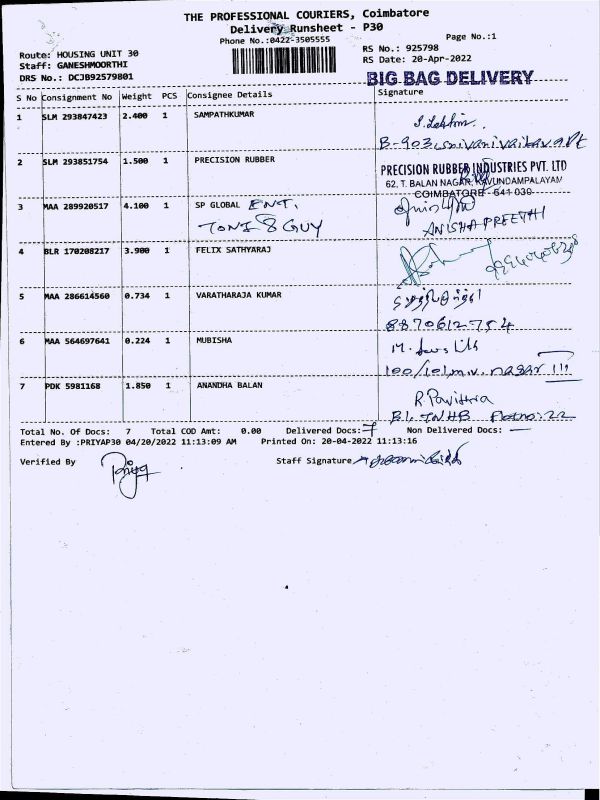 THE PROFESSIONAL COURIERS, Coimbatore
Delivery Runsheet - P30
Phone No.:0422-3505555
Page No.:1
Route: HOUSING UNIT 30
RS No.: 925798
Staff: GANESHMOORTHI
RS Date: 20-Apr-2022
DRS No.: DCJB92579801
BIG BAG DELIVERY
S No Consignment No Weight PCS Consignee Details Signature
1 SLM 293847423 2.400 1 SAMPATHKUMAR
B-903
2 SLM 293851754 1.500 1 PRECISION RUBBER
PRECISION RUBBER INDUSTRIES PVT. LTD
62, T. BALAN NAGAR, KAVUNDAMPALAYAM
COIMBATORE - 641 030
3 MAA 289920517 4.100 1 SP GLOBAL ENT,
TONI & GUY
ANISHA PREETHI
4 BLR 170208217 3.900 1 FELIX SATHYARAJ
5 MAA 286614560 0.734 1 VARATHARAJA KUMAR
8870612754
6 MAA 564697641 0.224 1 MUBISHA
100/101, m.v. nagar
7 PDK 5981168 1.850 1 ANANDHA BALAN
R Pavithra
B1, TNHB Flatno: 22
Total No. Of Docs: 7 Total COD Amt: 0.00 Delivered Docs: 7 Non Delivered Docs: —
Entered By :PRIYAP30 04/20/2022 11:13:09 AM Printed On: 20-04-2022 11:13:16
Verified By Staff Signature